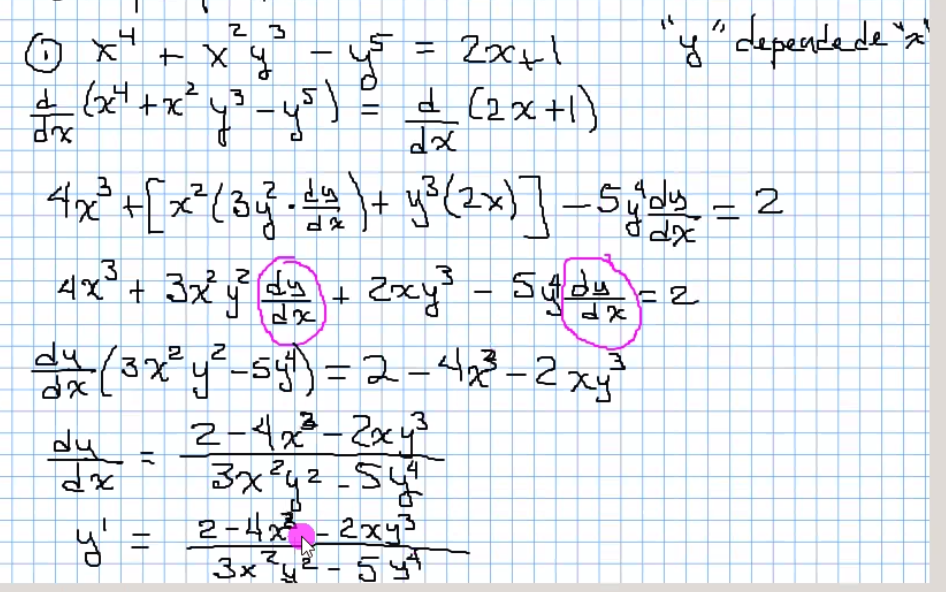 ① x⁴ + x²y³ − y⁵ = 2x+1 "y" depende de "x"
d/dx (x⁴ + x² y³ − y⁵) = d/dx (2x+1)
4x³ + [x²(3y² · dy/dx) + y³(2x)] − 5y⁴ dy/dx = 2
4x³ + 3x²y² dy/dx + 2xy³ − 5y⁴ dy/dx = 2
dy/dx (3x²y² − 5y⁴) = 2 − 4x³ − 2xy³
dy/dx = (2 − 4x³ − 2xy³)/(3x²y² − 5y⁴)
y' = (2 − 4x³ − 2xy³)/(3x²y² − 5y⁴)